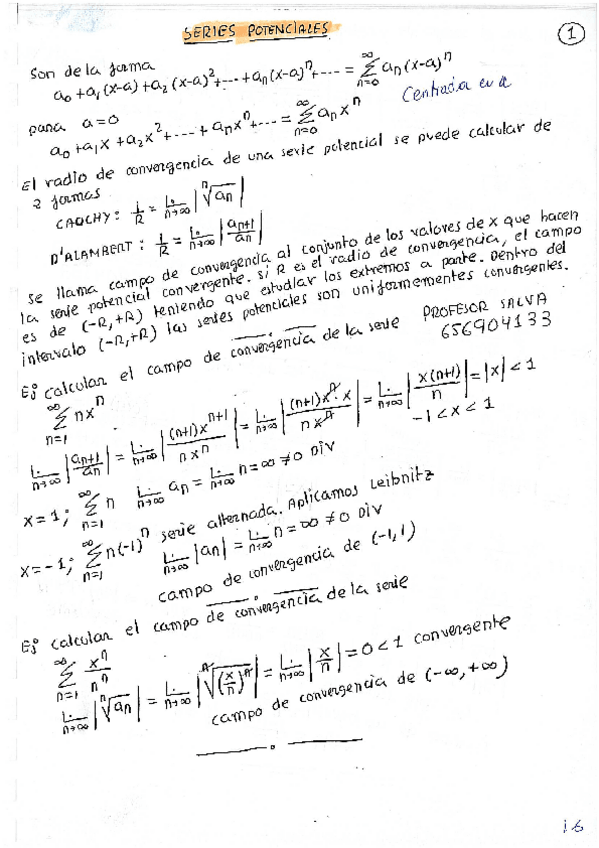 SERIES POTENCIALES
1
Son de la forma
a₀ + a₁(x-a) + a₂(x-a)² + ··· + aₙ(x-a)ⁿ + ··· = ∑_{n=0}^{∞} aₙ(x-a)ⁿ
Centrada en a
para a=0
a₀ + a₁x + a₂x² + ··· + aₙxⁿ + ··· = ∑_{n=0}^{∞} aₙxⁿ
El radio de convergencia de una serie potencial se puede calcular de
2 formas
CAUCHY: 1/R = L._{n→∞} |ⁿ√aₙ|
D'ALAMBERT: 1/R = L._{n→∞} |aₙ₊₁/aₙ|
Se llama campo de convergencia al conjunto de los valores de x que hacen
la serie potencial convergente. Si R es el radio de convergencia, el campo
es de (-R,+R) teniendo que estudiar los extremos a parte. Dentro del
intervalo (-R,+R) las series potenciales son uniformementes convergentes.
PROFESOR SALVA
656904133
Ej: calcular el campo de convergencia de la serie
∑_{n=1}^{∞} nxⁿ
L._{n→∞} |aₙ₊₁/aₙ| = L._{n→∞} |(n+1)xⁿ⁺¹/nxⁿ| = L._{n→∞} |(n+1)xⁿ·x/nxⁿ| = L._{n→∞} |x(n+1)/n| = |x| < 1
-1 < x < 1
x=1; ∑_{n=1}^{∞} n L._{n→∞} aₙ = L._{n→∞} n = ∞ ≠ 0 DIV
x=-1; ∑_{n=1}^{∞} n(-1)ⁿ serie alternada. Aplicamos Leibnitz
L._{n→∞} |aₙ| = L._{n→∞} n = ∞ ≠ 0 DIV
campo de convergencia de (-1,1)
Ej: calcular el campo de convergencia de la serie
∑_{n=1}^{∞} xⁿ/nⁿ
L._{n→∞} |ⁿ√aₙ| = L._{n→∞} |ⁿ√(x/n)ⁿ| = L._{n→∞} |x/n| = 0 < 1 convergente
campo de convergencia de (-∞,+∞)
16